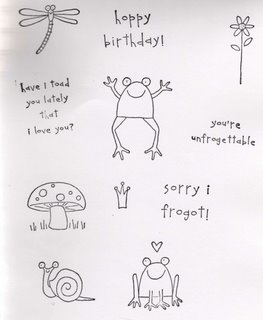 hoppy
birthday!
have i toad
you lately
that
i love you?
you're
unfrogettable
sorry i
frogot!